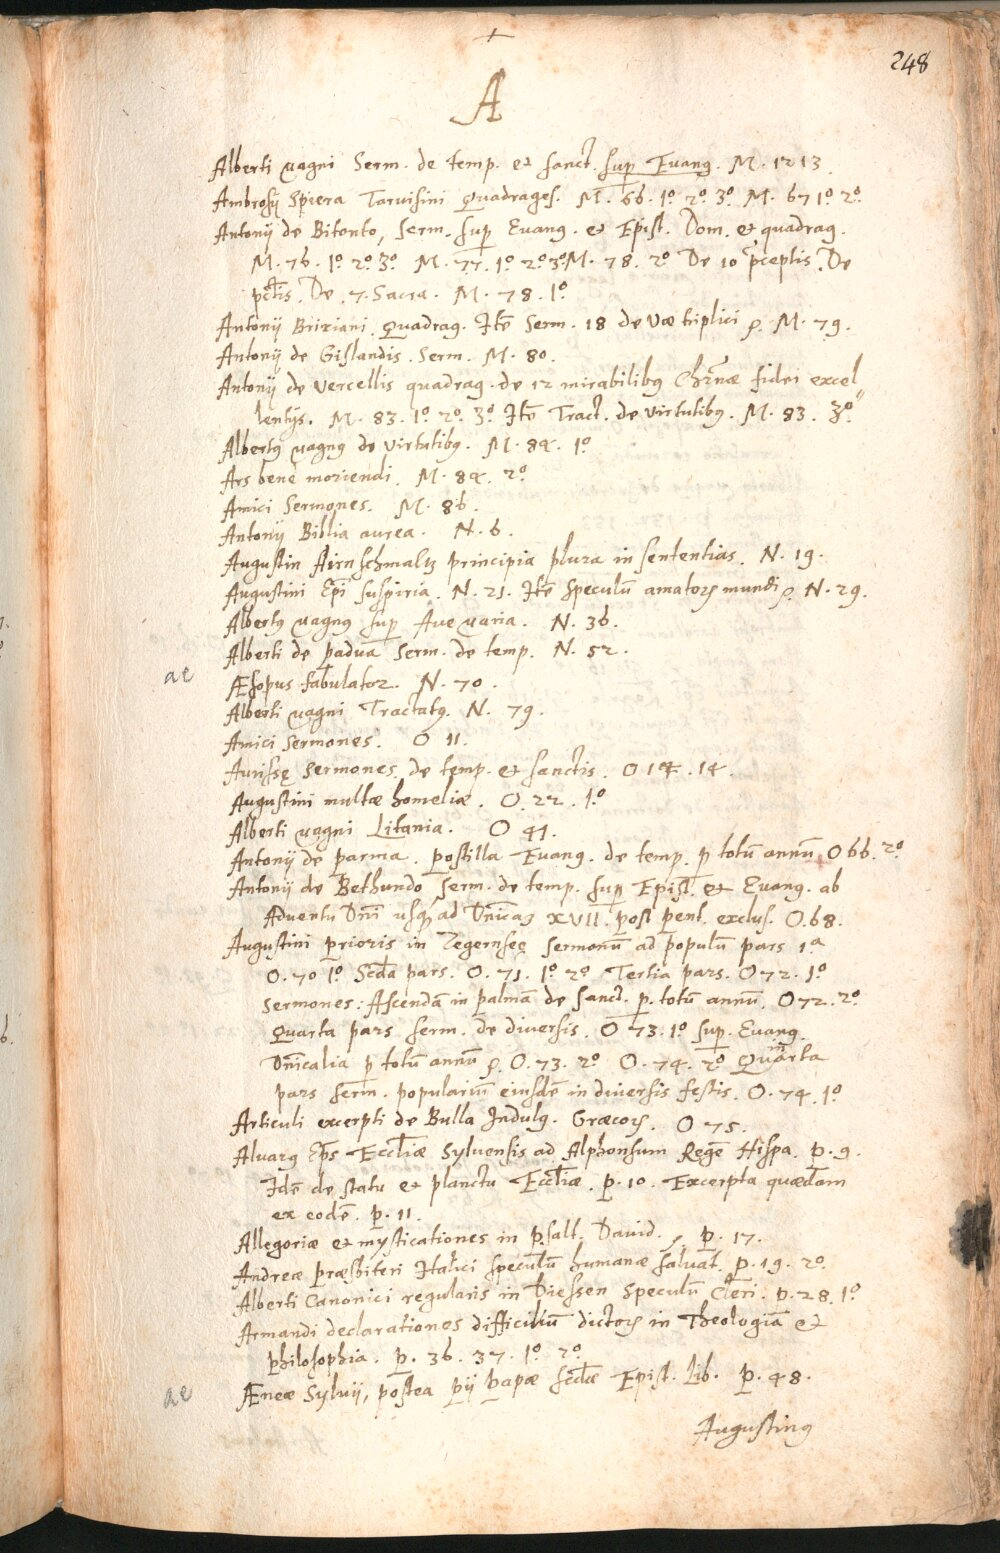 248
+
A
Alberti magni Serm. de temp. et sanct. sup Euang. M. 12 13.
Ambrosij Spiera Taruisini Quadrages. M. 66. 1º 2º 3º M. 67 1º 2º
Antonij de Bitonto, serm. sup Euang. et Epist. Dom. et quadrag.
M. 76. 1º 2º 3º M. 77. 1º 2º 3º M. 78. 2º De 10 pceptis. De
pctis. De. 7. Sacra. M. 78. 1º
Antonij Brixiani Quadrag. Itē Serm. 18 de Væ triplici M. 79.
Antonij de Gislandis. Serm. M. 80.
Antonij de Vercellis quadrag. de 12 mirabilibq Chr̄næ fidei excel
lentijs. M. 83. 1º 2º 3º Itē Tract. de virtutibq. M. 83. 3º
Albertq magnq de virtutibq. M. 84. 1º
Ars bene moriendi. M. 84. 2º
Amici Sermones. M. 86.
Antonij Biblia aurea. N. 6.
Augustin Airnschmaltz principia plura in sententias. N. 19.
Augustini Epī suspiria. N. 21. Itē Speculū amatorꝝ mundi N. 29.
Albertq magnq sup Aue maria. N. 36.
Alberti de padua Serm. de temp. N. 52.
ae
Æsopus fabulator. N. 70.
Alberti magni Tractatq. N. 79.
Amici Sermones. O 11.
Aurifsę Sermones de temp. et sanctis. O 14. 14.
Augustini multæ homeliæ. O. 22. 1º
Alberti magni Litania. O 41.
Antonij de parma. postilla Euang. de temp. p totū annū O 66. 2º
Antonij de Bethundo serm. de temp. sup Epist. et Euang. ab
Aduentu Dnī usq ad Dnīcaꝫ XVII. post pent. exclus. O. 68.
Augustini prioris in Tegernseę sermonū ad populū pars 1ª
O. 70 1º Scda pars. O. 71. 1º 2º Tertia pars. O 72. 1º
Sermones: Ascendā in palmā de sanct. p. totū annū. O 72. 2º
Quarta pars serm. de diuersis. O 73. 1º sup. Euang.
Dnīcalia p totū annū O. 73. 2º O. 74. 2º Quarta
pars serm. populariū eiusdē in diuersis festis. O. 74. 1º
Articuli excerpti de Bulla Indulg. Græcorꝝ. O 75.
Aluarq Eps̄ Eccliæ Syluensis ad Alphonsum Regē Hispa. p. 9.
Idē de statu et planctu Eccliæ. p. 10. Excerpta quædam
ex eodē. p. 11.
Allegoriæ et mysticationes in psalt. Dauid. p. 17.
Andreæ præsbiteri Italici speculū humanæ saluat. p. 19. 2º
Alberti Canonici regularis in Diessen Speculū Cleri. p. 28. 1º
Armandi declarationes difficiliū dictorꝝ in Theologiā et
philosophia. p. 36. 37. 1º 2º
ae
Æneæ Syluij, postea pij papæ scdæ Epist. Lib. p. 48.
Augustinq